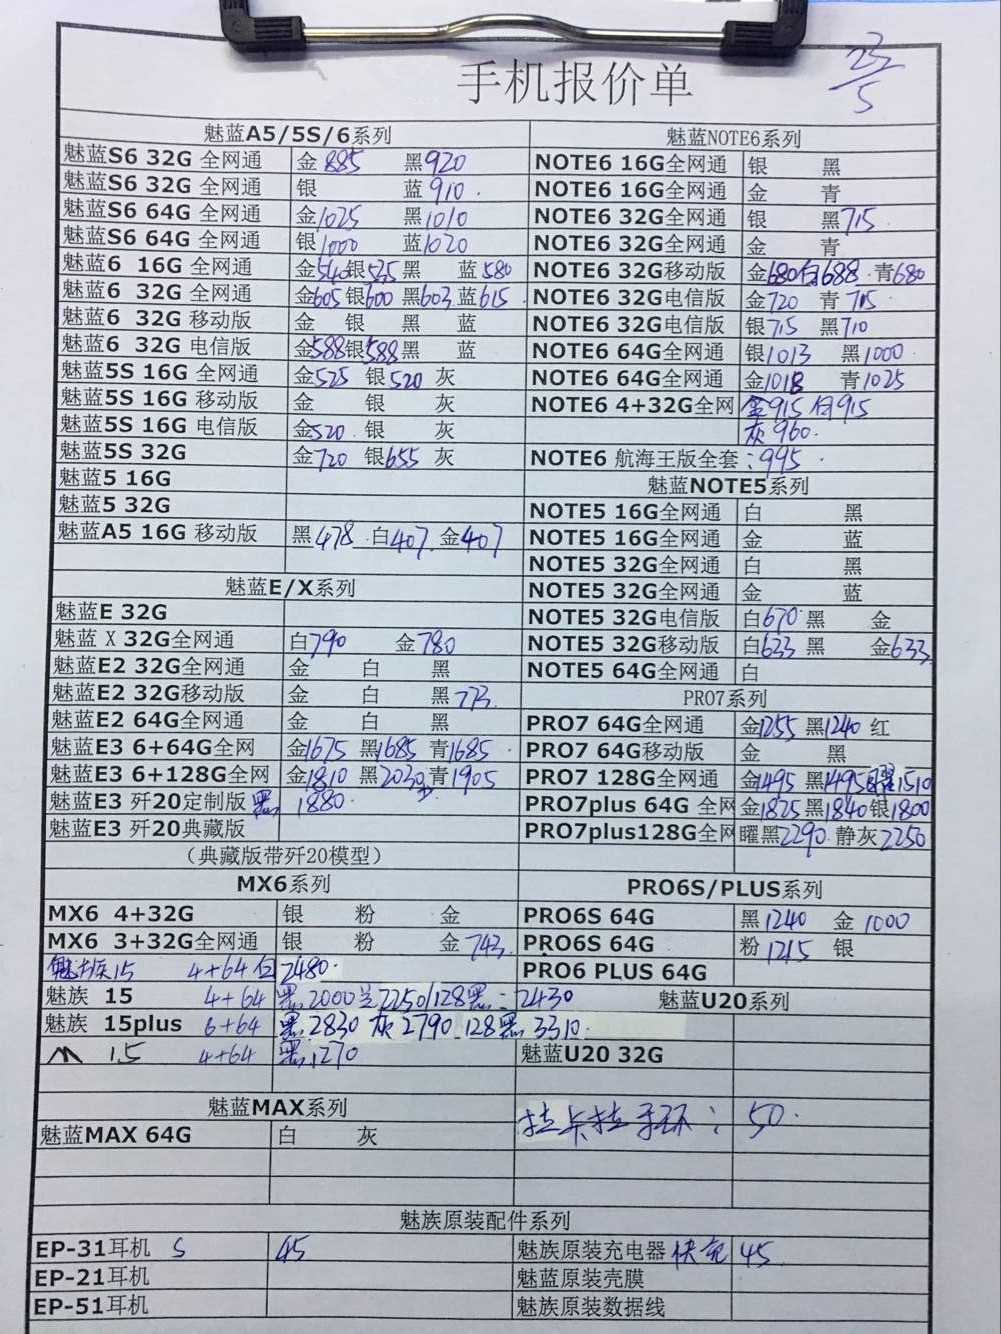 手机报价单
23/5
魅蓝A5/5S/6系列
魅蓝S6 32G 全网通 金 885 黑920
魅蓝S6 32G 全网通 银 蓝910
魅蓝S6 64G 全网通 金1025 黑1010
魅蓝S6 64G 全网通 银1000 蓝1020
魅蓝6 16G 全网通 金540 银525 黑 蓝580
魅蓝6 32G 全网通 金605 银600 黑603 蓝615
魅蓝6 32G 移动版 金 银 黑 蓝
魅蓝6 32G 电信版 金588 银588 黑 蓝
魅蓝5S 16G 全网通 金525 银520 灰
魅蓝5S 16G 移动版 金 银 灰
魅蓝5S 16G 电信版 金520 银 灰
魅蓝5S 32G 金720 银655 灰
魅蓝5 16G
魅蓝5 32G
魅蓝A5 16G 移动版 黑478 白407 金407
魅蓝E/X系列
魅蓝E 32G
魅蓝 X 32G全网通 白790 金780
魅蓝E2 32G全网通 金 白 黑
魅蓝E2 32G移动版 金 白 黑773
魅蓝E2 64G全网通 金 白 黑
魅蓝E3 6+64G全网 金1675 黑1685 青1685
魅蓝E3 6+128G全网 金1810 黑 青1905
魅蓝E3 歼20定制版 黑 1880
魅蓝E3 歼20典藏版
（典藏版带歼20模型）
MX6系列
MX6 4+32G 银 粉 金
MX6 3+32G全网通 银 粉 金743
魅族15 4+64 白 2480
魅族 15 4+64 黑2000 兰2250/128黑：2430
魅族 15plus 6+64 黑2830 灰2790 128黑3310
15 4+64 黑1270
魅蓝MAX系列
魅蓝MAX 64G 白 灰
魅蓝NOTE6系列
NOTE6 16G全网通 银 黑
NOTE6 16G全网通 金 青
NOTE6 32G全网通 银 黑715
NOTE6 32G全网通 金 青
NOTE6 32G移动版 金680 白688 青680
NOTE6 32G电信版 金720 青715
NOTE6 32G电信版 银715 黑710
NOTE6 64G全网通 银1013 黑1000
NOTE6 64G全网通 金1018 青1025
NOTE6 4+32G全网 金915 白915
灰960
NOTE6 航海王版全套：995
魅蓝NOTE5系列
NOTE5 16G全网通 白 黑
NOTE5 16G全网通 金 蓝
NOTE5 32G全网通 白 黑
NOTE5 32G全网通 金 蓝
NOTE5 32G电信版 白670 黑 金
NOTE5 32G移动版 白633 黑 金633
NOTE5 64G全网通 白
PRO7系列
PRO7 64G全网通 金1255 黑1240 红
PRO7 64G移动版 金 黑
PRO7 128G全网通 金1495 黑1495 曜1510
PRO7plus 64G 全网 金1825 黑1840 银1800
PRO7plus128G全网 曜黑2290 静灰2250
PRO6S/PLUS系列
PRO6S 64G 黑1240 金 1000
PRO6S 64G 粉1215 银
PRO6 PLUS 64G
魅蓝U20系列
魅蓝U20 32G
拉卡拉手环：50
魅族原装配件系列
EP-31耳机 S 45 魅族原装充电器 快充 45
EP-21耳机 魅蓝原装壳膜
EP-51耳机 魅族原装数据线